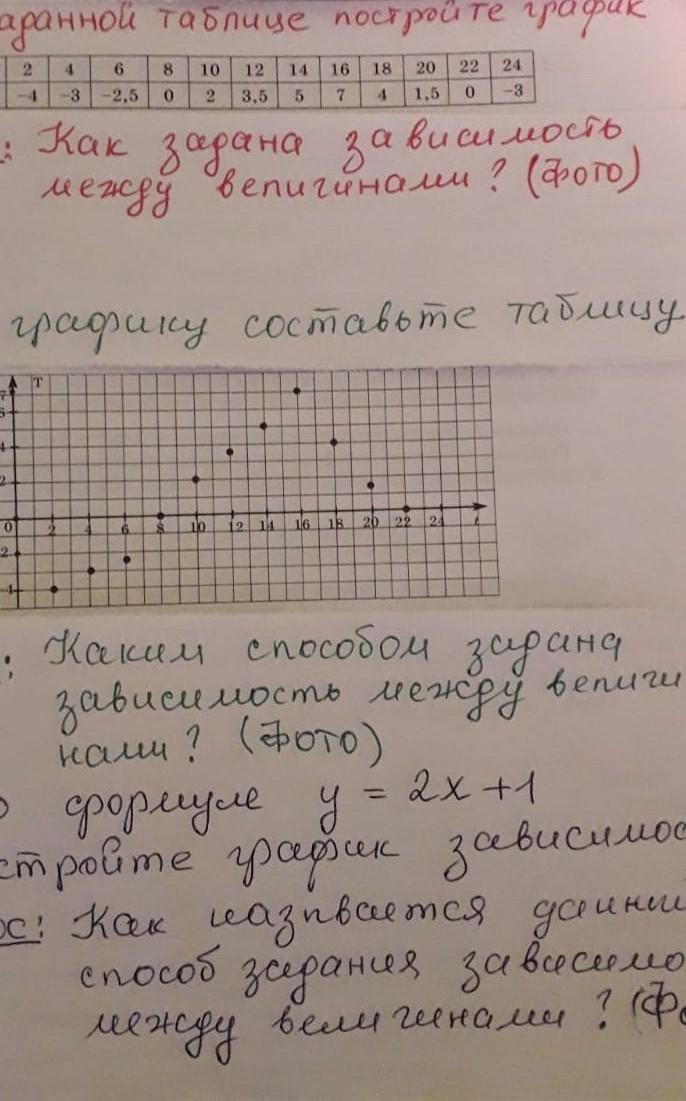 аранной таблице постройте график
2 4 6 8 10 12 14 16 18 20 22 24
-4 -3 -2,5 0 2 3,5 5 7 4 1,5 0 -3
: Как задана зависимость
между величинами? (Фото)
графику составьте таблицу
T
4
2
0 2 4 6 8 10 12 14 16 18 20 22 24 t
2
4
: Каким способом задана
зависимость между величи
нами? (Фото)
о формуле y = 2x + 1
стройте график зависимос
ос: Как называется данний
способ задания зависимо
между величинами? (Фо